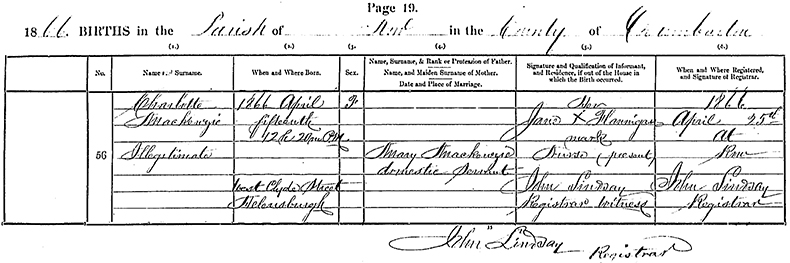 Page 19.
1866. BIRTHS in the Parish of Row in the County of Dumbarton
(1.) (2.) (3.) (4.) (5.) (6.)
No. Name & Surname. When and Where Born. Sex. Name, Surname, & Rank or Profession of Father. Signature and Qualification of Informant, When and Where Registered,
Name, and Maiden Surname of Mother. and Residence, if out of the House in and Signature of Registrar.
Date and Place of Marriage. which the Birth occurred.
Charlotte 1866 April F Her 1866
Mackenzie fifteenth Jane X Flannigan April 25th
12h 20m P.M. mark At
56 Illegitimate Mary Mackenzie Nurse (present) Row
domestic Servant
West Clyde Street John Lindsay John Lindsay
Helensburgh Registrar Witness Registrar
John Lindsay Registrar